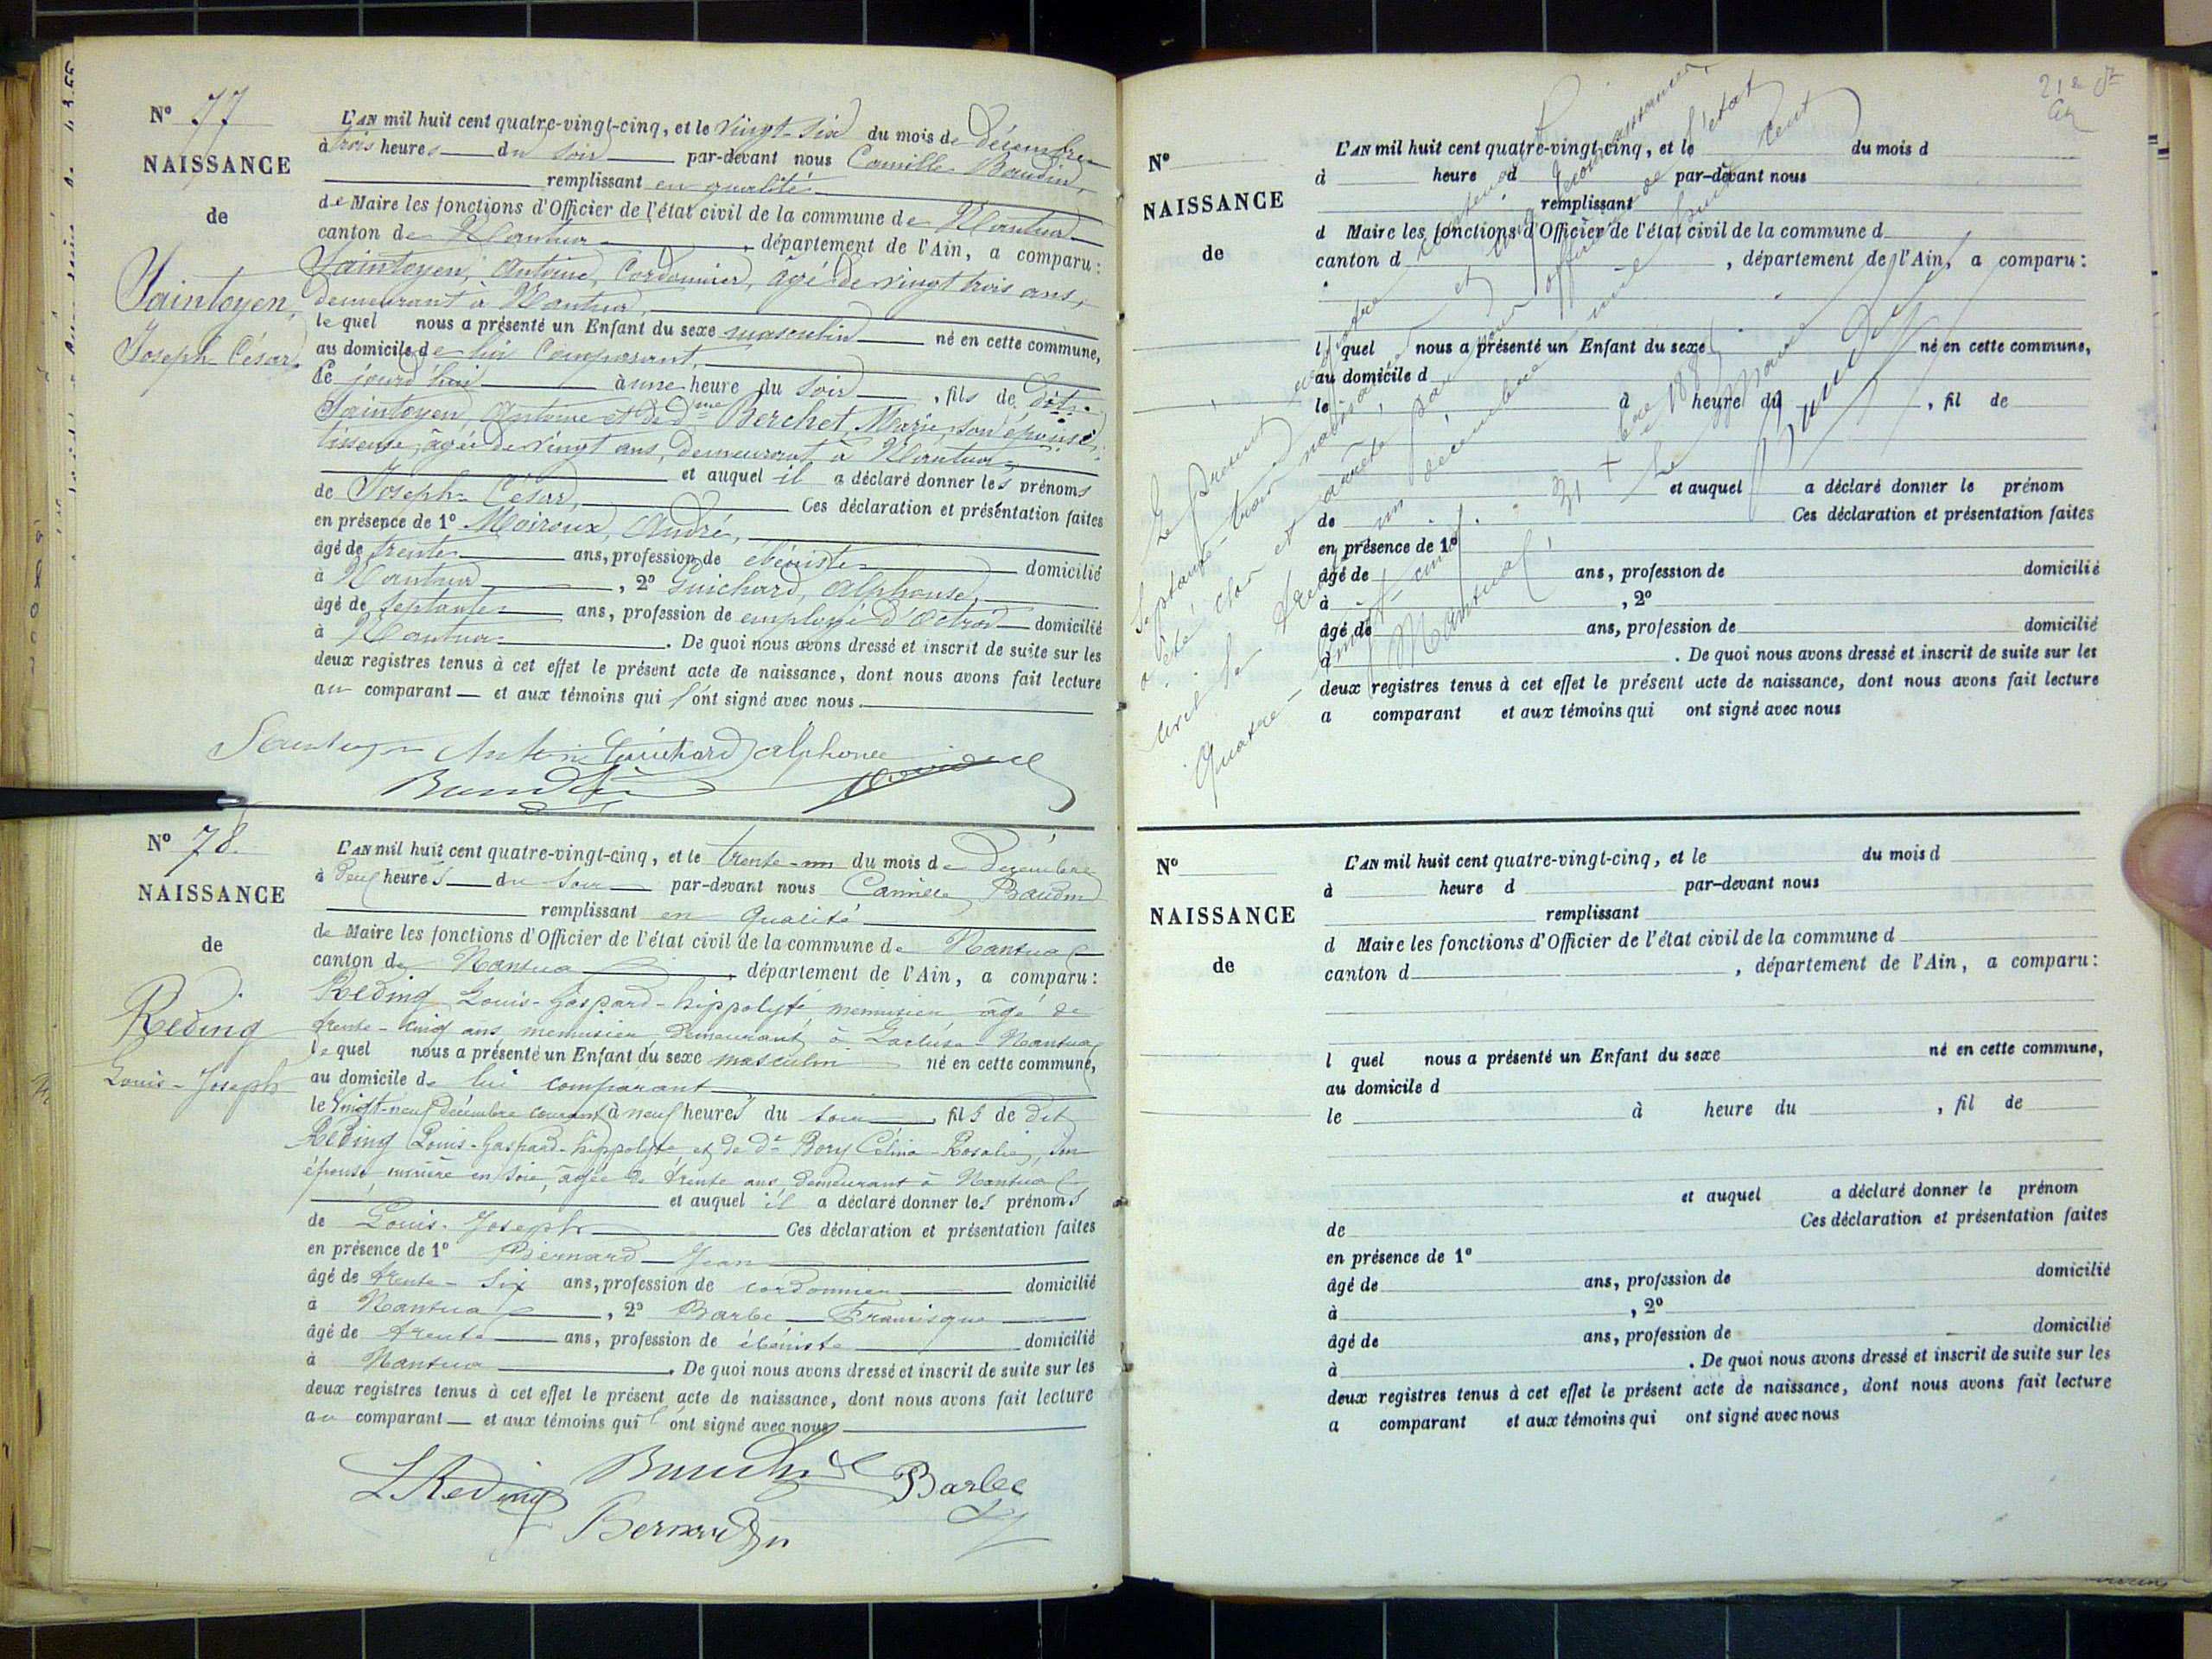 N° 77
NAISSANCE
de
Saintoyen,
Joseph-César.
L'AN mil huit cent quatre-vingt-cinq, et le vingt-six du mois de Décembre
à trois heures du soir par-devant nous Camille Baudin,
remplissant en qualité
de Maire les fonctions d'Officier de l'état civil de la commune de Nantua
canton de Nantua, département de l'Ain, a comparu :
Saintoyen, Antoine, Cordonnier, âgé de vingt trois ans,
demeurant à Nantua,
lequel nous a présenté un Enfant du sexe masculin né en cette commune,
au domicile de lui Comparant,
Ce jourd'hui à une heure du soir, fils de dit
Saintoyen, Antoine et de dme Berchet, Marie, son épouse,
tisseuse, âgée de vingt ans, demeurant à Nantua,
et auquel il a déclaré donner les prénoms
de Joseph-César, Ces déclaration et présentation faites
en présence de 1° Moiroux, André,
âgé de trente ans, profession de ébéniste domicilié
à Nantua, 2° Guichard, Alphonse,
âgé de septante ans, profession de employé d'Octroi domicilié
à Nantua. De quoi nous avons dressé et inscrit de suite sur les
deux registres tenus à cet effet le présent acte de naissance, dont nous avons fait lecture
au comparant et aux témoins qui l'ont signé avec nous.
Antoine Guichard alphonse
Baudin
N° 78.
NAISSANCE
de
Reding
Louis-Joseph
L'AN mil huit cent quatre-vingt-cinq, et le trente-un du mois de Décembre
à deux heures du soir par-devant nous Camille Baudin
remplissant en qualité
de Maire les fonctions d'Officier de l'état civil de la commune de Nantua
canton de Nantua, département de l'Ain, a comparu :
Reding Louis-Gaspard-hippolyte menuisier âgé de
trente-cinq ans menuisier demeurant à Nantua
lequel nous a présenté un Enfant du sexe masculin né en cette commune,
au domicile de lui comparant
le vingt-neuf décembre courant à neuf heures du soir, fils de dit
Reding Louis-Gaspard-hippolyte et de de Bory Célina-Rosalie, son
épouse, ouvrière en soie, âgée de trente ans demeurant à Nantua
et auquel il a déclaré donner les prénoms
de Louis-Joseph Ces déclaration et présentation faites
en présence de 1° Bernard Jean
âgé de trente-six ans, profession de cordonnier domicilié
à Nantua, 2° Barbe Francisque
âgé de trente ans, profession de ébéniste domicilié
à Nantua. De quoi nous avons dressé et inscrit de suite sur les
deux registres tenus à cet effet le présent acte de naissance, dont nous avons fait lecture
au comparant et aux témoins qui l'ont signé avec nous
L Reding Baudin Barbe
Bernard
N°
NAISSANCE
de
L'AN mil huit cent quatre-vingt-cinq, et le du mois d
à heure d par-devant nous
remplissant
d Maire les fonctions d'Officier de l'état civil de la commune d
canton d , département de l'Ain, a comparu :
l quel nous a présenté un Enfant du sexe né en cette commune,
au domicile d
le à heure du , fil de
et auquel a déclaré donner le prénom
de Ces déclaration et présentation faites
en présence de 1°
âgé de ans, profession de domicilié
à , 2°
âgé de ans, profession de domicilié
à . De quoi nous avons dressé et inscrit de suite sur les
deux registres tenus à cet effet le présent acte de naissance, dont nous avons fait lecture
a comparant et aux témoins qui ont signé avec nous
Le présent registre contenant
septante-trois naissances et cinq reconnaissances,
a été clos et arrêté par nous officier de l'état
civil le trente un décembre mil huit cent
quatre-vingt-cinq.
Nantua 31 Xbre 1885
Le Maire
N°
NAISSANCE
de
L'AN mil huit cent quatre-vingt-cinq, et le du mois d
à heure d par-devant nous
remplissant
d Maire les fonctions d'Officier de l'état civil de la commune d
canton d , département de l'Ain, a comparu :
l quel nous a présenté un Enfant du sexe né en cette commune,
au domicile d
le à heure du , fil de
et auquel a déclaré donner le prénom
de Ces déclaration et présentation faites
en présence de 1°
âgé de ans, profession de domicilié
à , 2°
âgé de ans, profession de domicilié
à . De quoi nous avons dressé et inscrit de suite sur les
deux registres tenus à cet effet le présent acte de naissance, dont nous avons fait lecture
a comparant et aux témoins qui ont signé avec nous